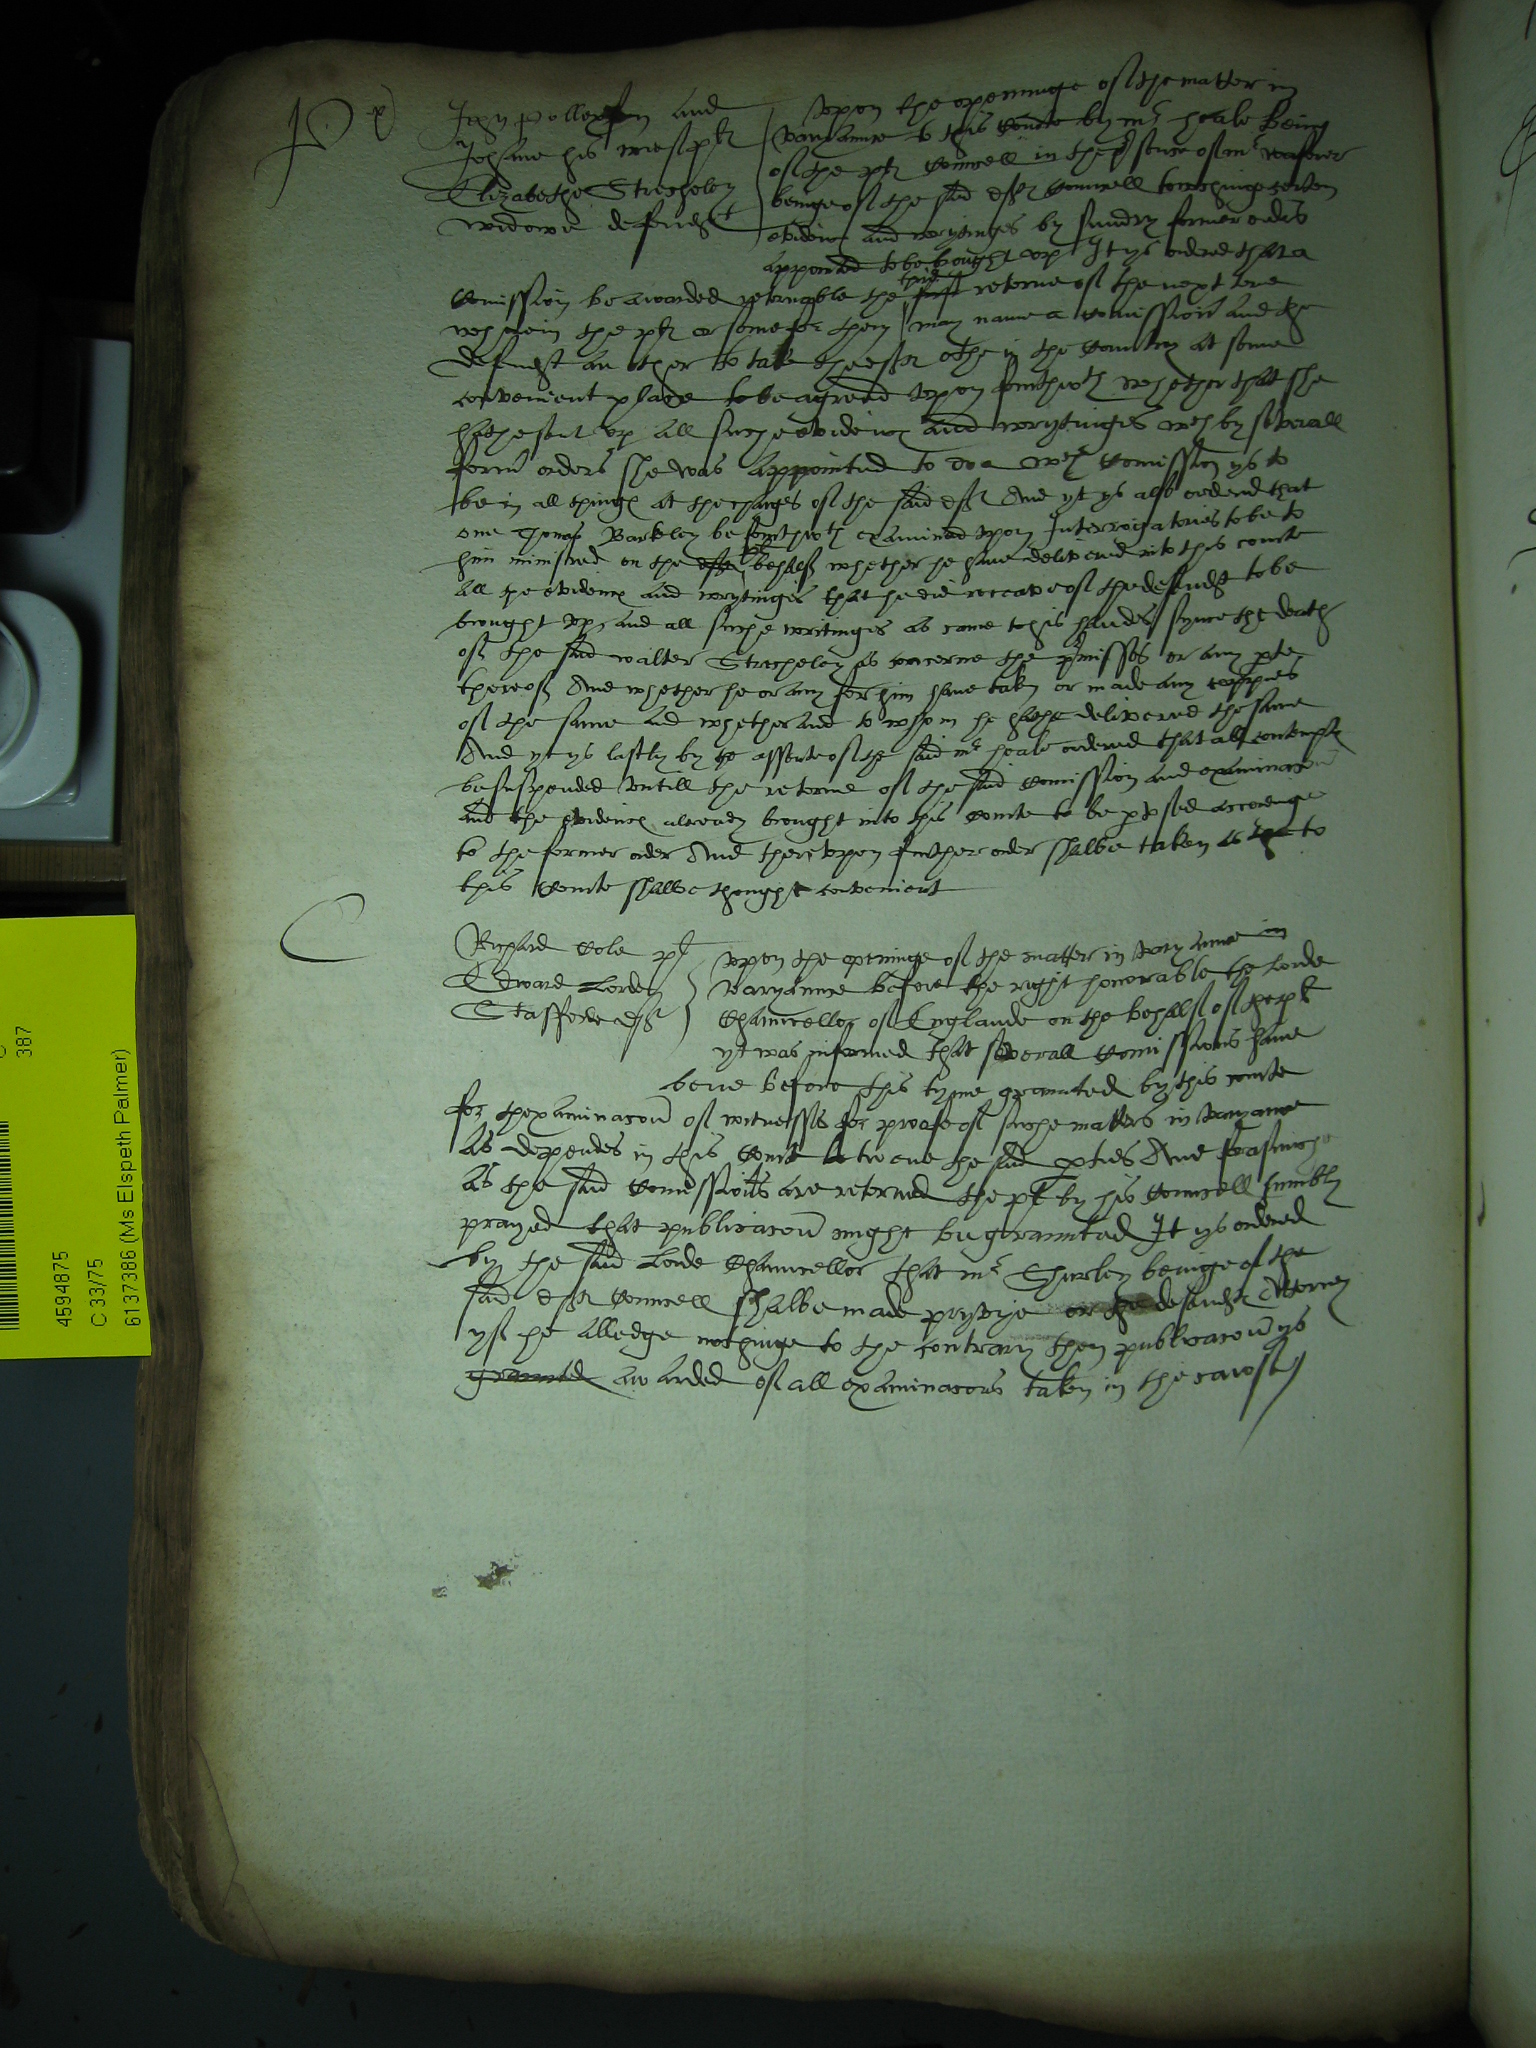 P
John Pollexfen and
Johane his wief pl
Elizabethe Strecheley
widowe defendt
Upon the openinge of the matter in
varyaunce to this Courte by mr Heale being
of the pl Councell in the psence of mr
beinge of the said deft Councell towchinge certen
evidence and wrytinges by sundry former orders
appointed to be brought up It ys ordered that a
Comission be awarded retornable the first third retorne of the next terme
wherin the pl or some for them may name a Comissioner and the
defendt an other to take the deft othe in the Countrey at some
convenient place to be agreed upon forthwth whether that she
hathe sent up all suche evidence and wrytinges wch by severall
former orders she was appointed to doe wch Comission ys to
be in all things at the charges of the said deft And yt ys also ordered that
one Thomas Barkley be forthwth examined upon Interrogatories to be to
him ministred on the deft pl behalf whether he have delivered into this courte
all the evidence and wrytinges that he did receave of the defendt to be
brought up, and all suche writinges as came to his handes synce the death
of the said Walter Strecheley as concerne the pmisses or any pte
thereof And whether he or any for him have taken or made any coppies
of the same and whether and to whom he hathe delivered the same
And yt ys lastly by the assente of the said mr Heale ordered that all contempts
be suspended untill the retorne of the said Comission and examinacon
and the evidence already brought into this Courte to be pused accordinge
to the former order And thereupon further order shalbe taken as to
this Courte shalbe thought convenient
C
Richard Cole pl
Edward Lorde
Stafforde deft
Upon the openinge of the matter in varyaunce in
varyaunce before the right honorable the Lorde
Chauncellor of Englande on the behalf of the pl
yt was informed that severall Comissions have
bene before this tyme graunted by this courte
for thexaminacon of witnesses for proofe of suche matters in varyance
as dependes in this Courte betwene the said pties And forasmuche
as the said Comissions are retorned the pl by his Councell humbly
prayed that publicacon might be graunted It ys ordered
by the said Lorde Chauncellor that mr Shurley beinge of the
said deft Councell shalbe made pryvye or the defendt Attorney
yf he alledge nothinge to the contrary then publicacon ys
graunted awarded of all examinacons taken in the cawse
387
4594875
C 33/75
6137386 (Ms Elspeth Palmer)